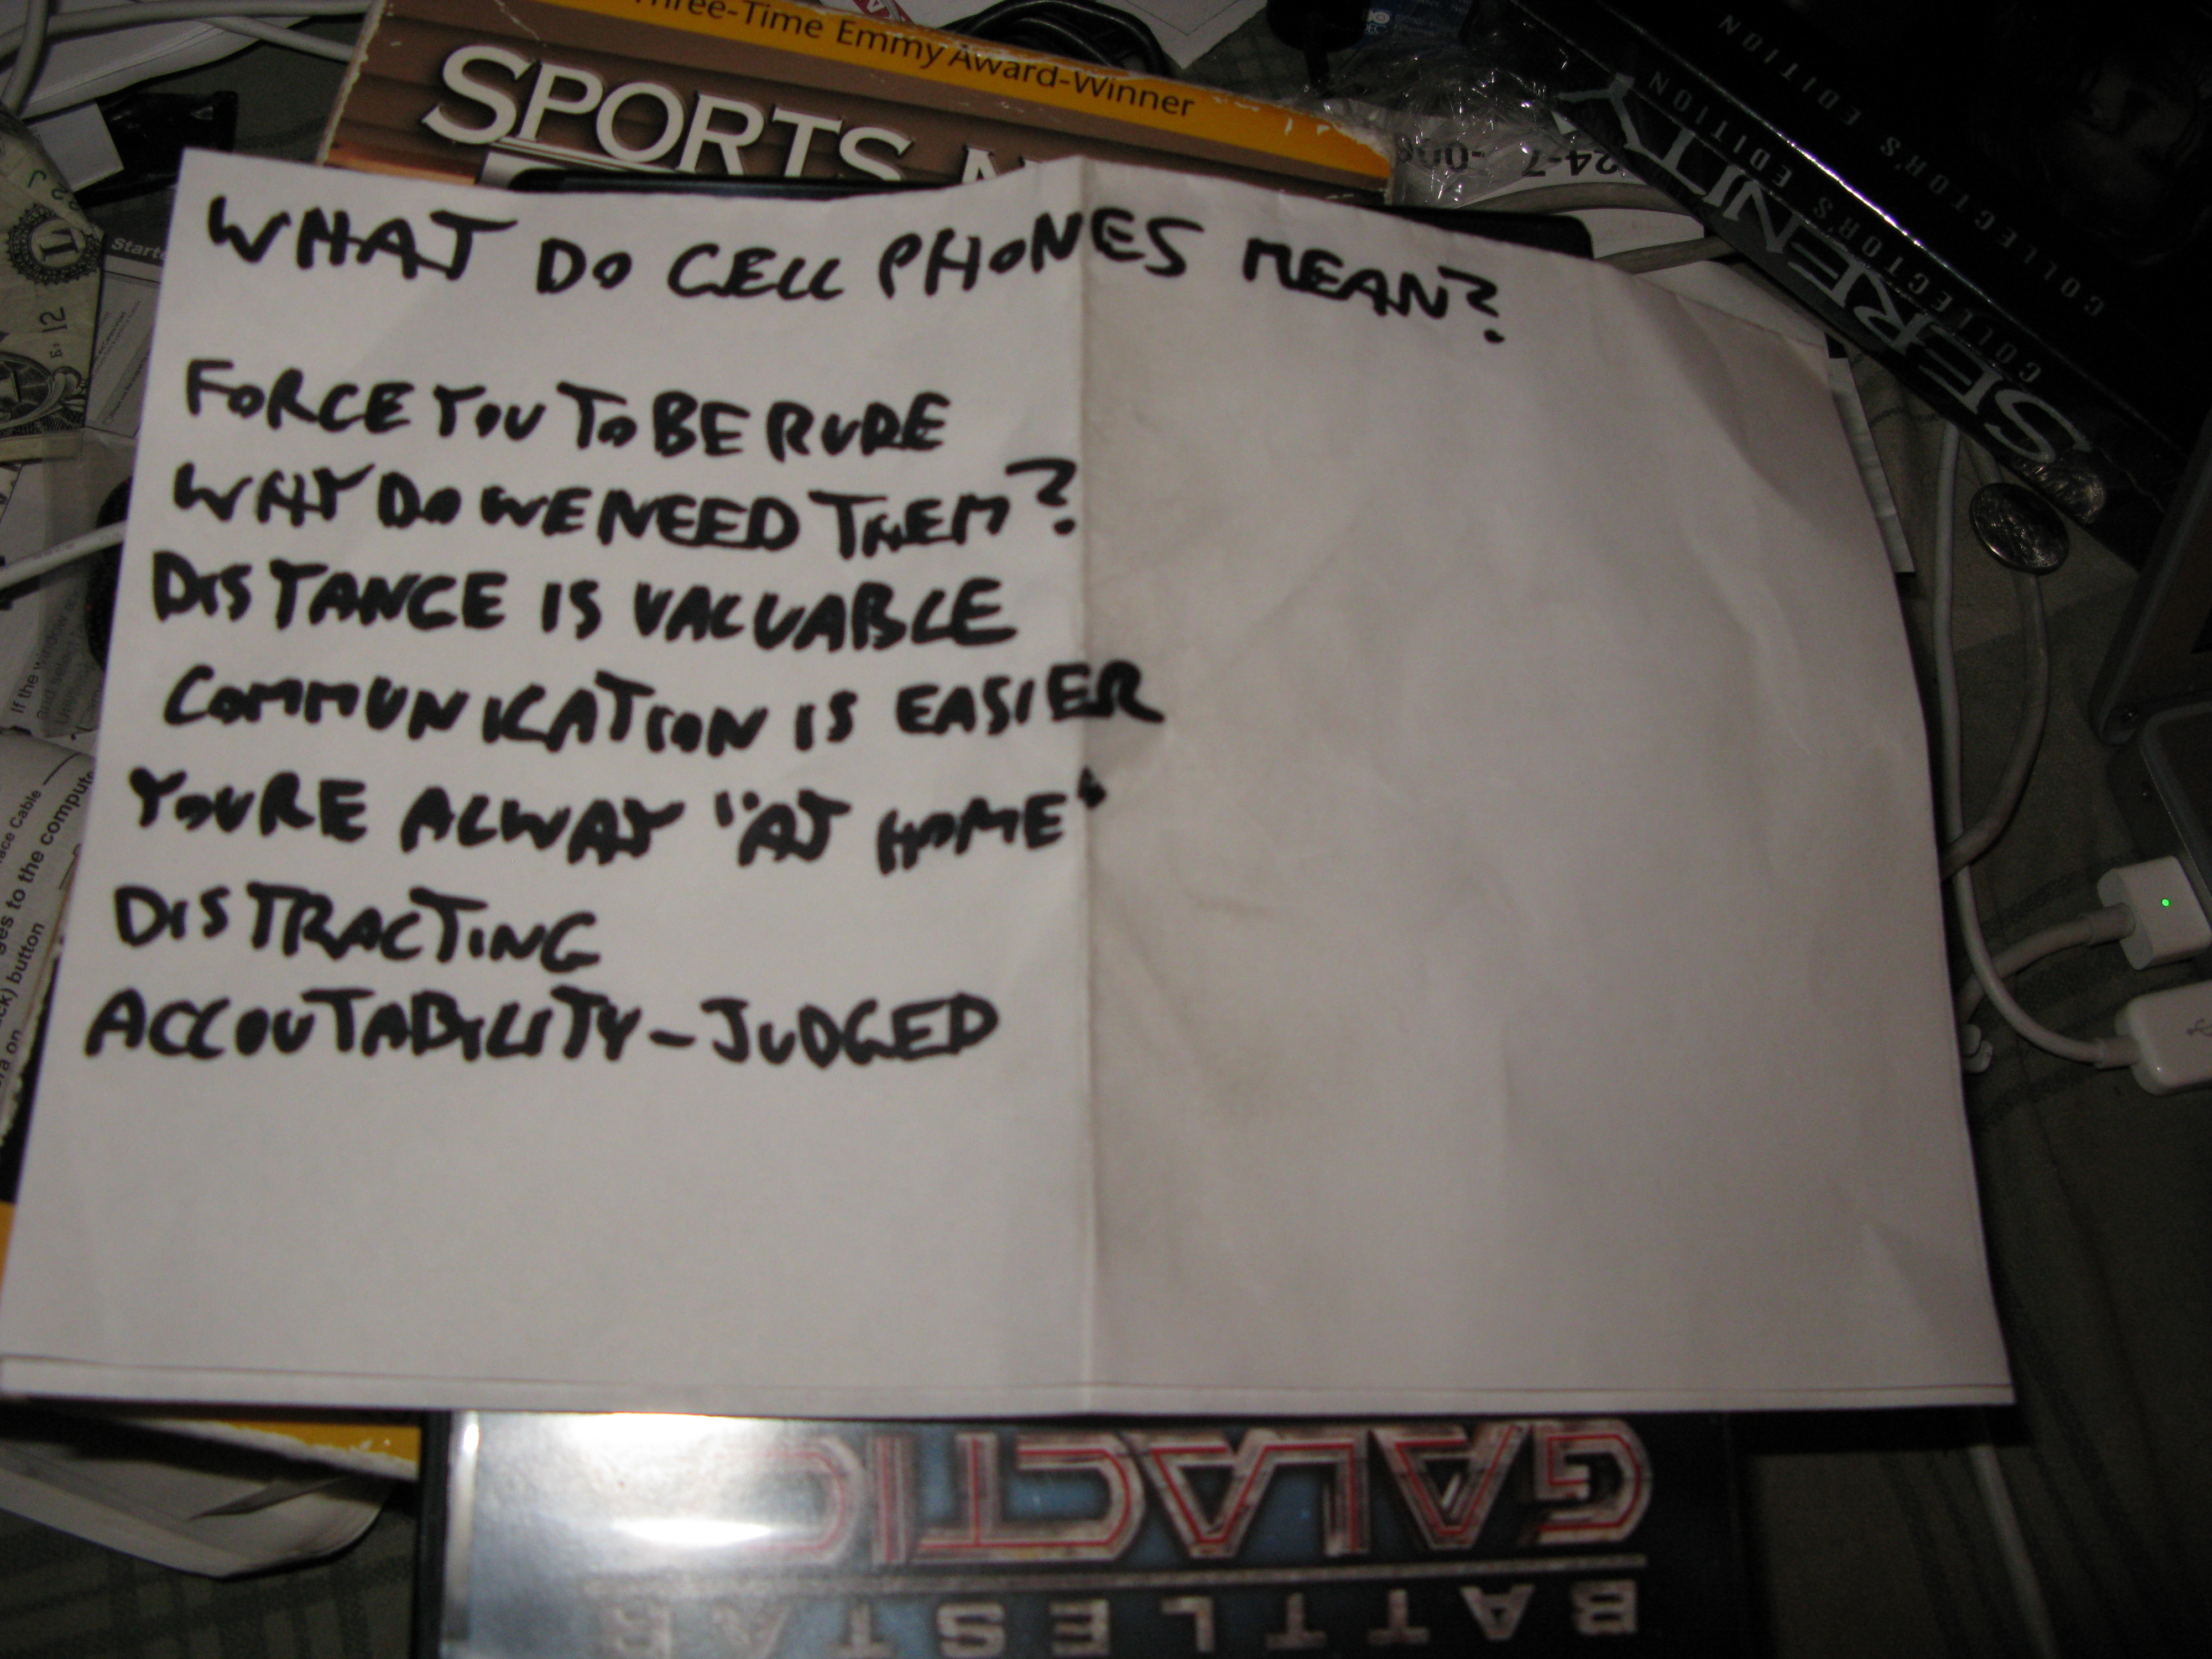 Three-Time Emmy Award-Winner
SPORTS
COLLECTOR'S EDITION
SERENITY
COLLECTOR'S EDITION
WHAT DO CELL PHONES MEAN?
FORCE YOU TO BE RUDE
WHY DO WE NEED THEM?
DISTANCE IS VALUABLE
COMMUNICATION IS EASIER
YOURE ALWAY "AT HOME"
DISTRACTING
ACCOUTABILITY - JUDGED
If the window
to the compute
button
BATTLESTAR
GALACTIC